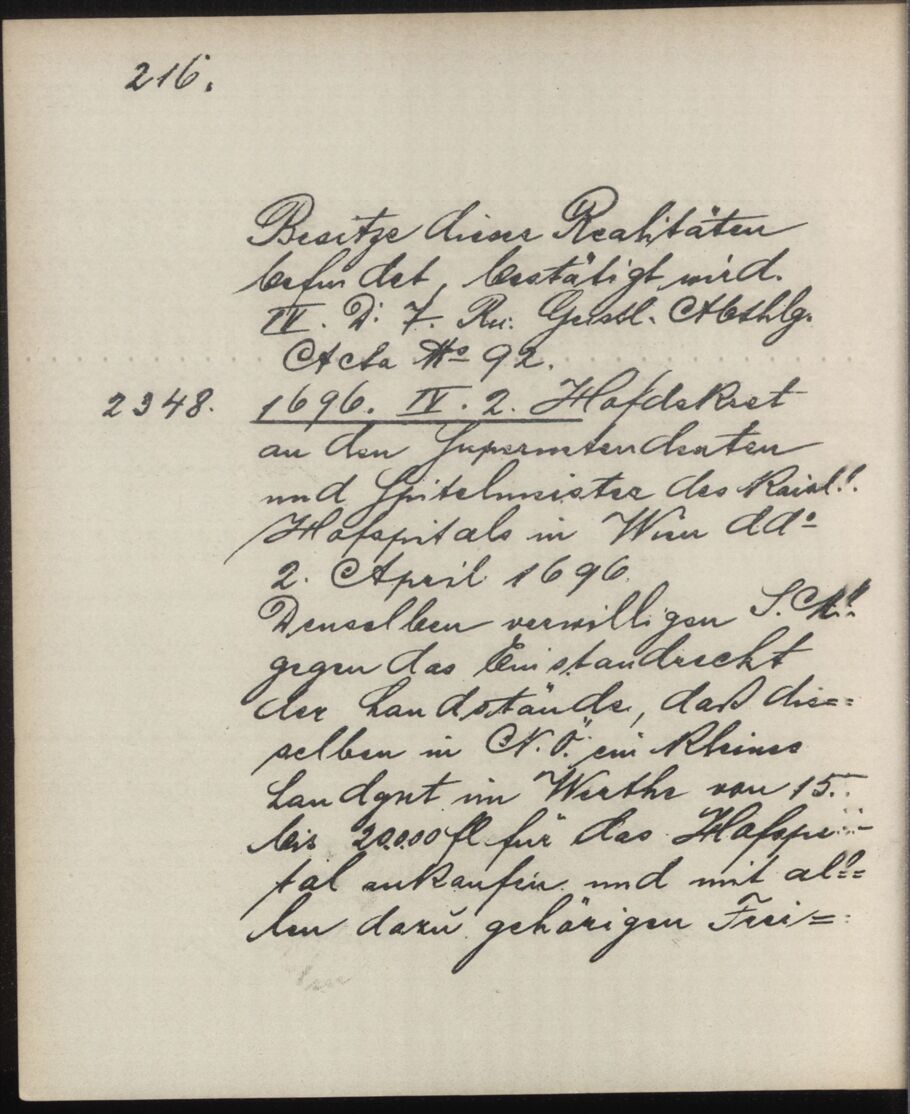 216.
Besitze dieser Realitäten
befindet, bestätigt wird.
IV. D. 7. Geistl. Abthlg.
Acta No 92.
2348. 1696. IV. 2. Hofdekret
an den Superintendenten
und Spitelmeister des Kaisl.
Hofspitals in Wien ddo
2. April 1696.
Denselben verwilligen S. M.
gegen das Einstandrecht
der Landstände, daß die=
selben in N. Ö. ein kleines
Landgut im Werthe von 15.
bis 20.000 fl für das Hofspi=
tal ankaufen und mit al=
len dazu gehörigen Frei=